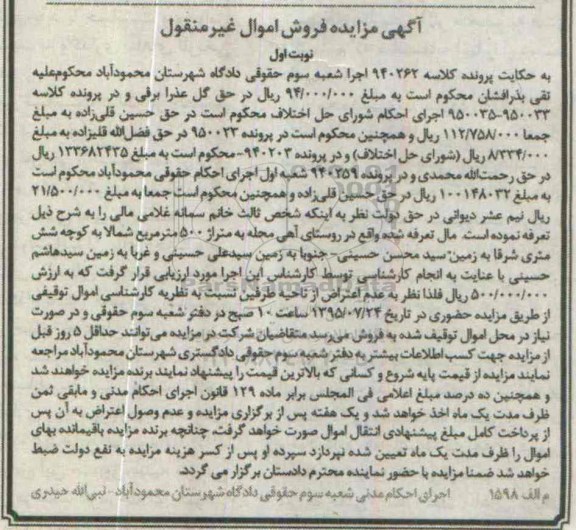 آگهی مزایده فروش اموال غیر منقول
نوبت اول
به حکایت پرونده کلاسه ۹۴۰۲۶۲ اجرا شعبه سوم حقوقی دادگاه شهرستان محمودآباد محکوم‌علیه
تقی بذرافشان محکوم است به مبلغ ۹۴/۰۰۰/۰۰۰ ریال در حق گل عذرا برقی و در پرونده کلاسه
۹۵۰۰۳۳-۹۵۰۰۳۵ اجرای احکام شورای حل اختلاف محکوم است در حق حسین قلی‌زاده به مبلغ
جمعا ۱۱۲/۷۵۸/۰۰۰ ریال و همچنین محکوم است در پرونده ۹۵۰۰۲۳ در حق فضل‌الله قلیزاده به مبلغ
۸/۳۳۴/۰۰۰ ریال (شورای حل اختلاف) و در پرونده ۹۴۰۲۰۳-محکوم است به مبلغ ۱۳۳۶۸۲۴۳۵ ریال
در حق رحمت‌الله محمدی و در پرونده ۹۴۰۲۵۹ شعبه اول اجرای احکام حقوقی محمودآباد محکوم است
به مبلغ ۱۰۰۱۴۸۰۳۲ ریال در حق حسین قلی‌زاده و همچنین محکوم است جمعا به مبلغ ۲۱/۵۰۰/۰۰۰
ریال نیم عشر دیوانی در حق دولت نظر به اینکه شخص ثالث خانم سمانه غلامی مالی را به شرح ذیل
تعرفه نموده است. مال تعرفه شده واقع در روستای آهی محله به متراژ ۵۰۰ مترمربع شمالا به کوچه شش
متری شرقا به زمین سید محسن حسینی- جنوبا به زمین سیدعلی حسینی و غربا به زمین سیدهاشم
حسینی با عنایت به انجام کارشناسی توسط کارشناس این اجرا مورد ارزیابی قرار گرفت که به ارزش
۵۰۰/۰۰۰/۰۰۰ ریال فلذا نظر به عدم اعتراض از ناحیه طرفین نسبت به نظریه کارشناسی اموال توقیفی
از طریق مزایده حضوری در تاریخ ۱۳۹۵/۰۷/۲۴ ساعت ۱۰ صبح در دفتر شعبه سوم حقوقی و در صورت
نیاز در محل اموال توقیف شده به فروش می‌رسد متقاضیان شرکت در مزایده می‌توانند حداقل ۵ روز قبل
از مزایده جهت کسب اطلاعات بیشتر به دفتر شعبه سوم حقوقی دادگستری شهرستان محمودآباد مراجعه
نمایند مزایده از قیمت پایه شروع و کسانی که بالاترین قیمت را پیشنهاد نمایند برنده مزایده خواهند شد
و همچنین ده درصد مبلغ اعلامی فی المجلس برابر ماده ۱۲۹ قانون اجرای احکام مدنی و مابقی ثمن
ظرف مدت یک ماه اخذ خواهد شد و یک هفته پس از برگزاری مزایده و عدم وصول اعتراض به آن پس
از پرداخت کامل مبلغ پیشنهادی انتقال اموال صورت خواهد گرفت، چنانچه برنده مزایده باقیمانده بهای
اموال را ظرف مدت یک ماه تعیین شده نپردازد سپرده او پس از کسر هزینه مزایده به نفع دولت ضبط
خواهد شد ضمنا مزایده با حضور نماینده محترم دادستان برگزار می گردد.
م الف ۱۵۹۸ اجرای احکام مدنی شعبه سوم حقوقی دادگاه شهرستان محمودآباد- نبی‌الله حیدری